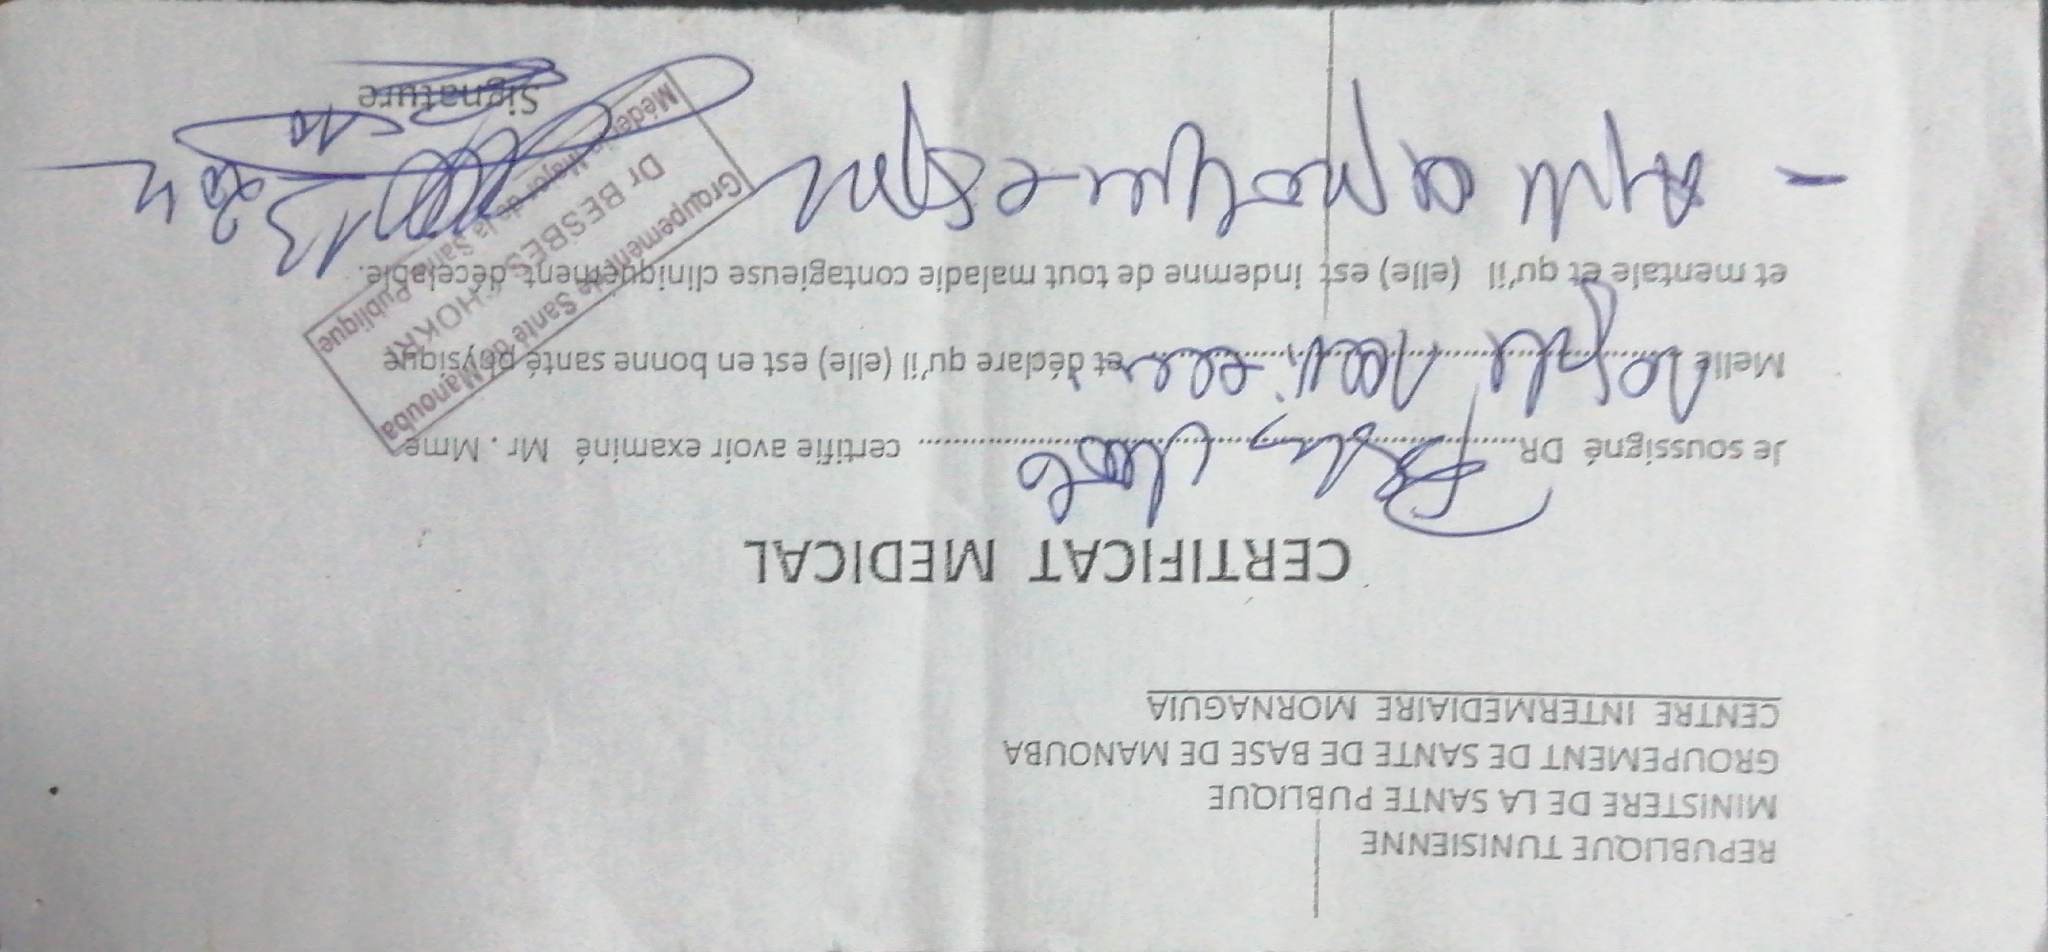 REPUBLIQUE TUNISIENNE
MINISTERE DE LA SANTE PUBLIQUE
GROUPEMENT DE SANTE DE BASE DE MANOUBA
CENTRE INTERMEDIAIRE MORNAGUIA
CERTIFICAT MEDICAL
Je soussigné DR............ certifie avoir examiné Mr . Mme
Melle ............ et déclare qu'il (elle) est en bonne santé physique
et mentale et qu'il (elle) est indemne de tout maladie contagieuse cliniquement décelable.
- Apte a
Signature
Groupement de Santé de Manouba
Dr BESBES CHOKRI
Médecin Major de la Santé Publique